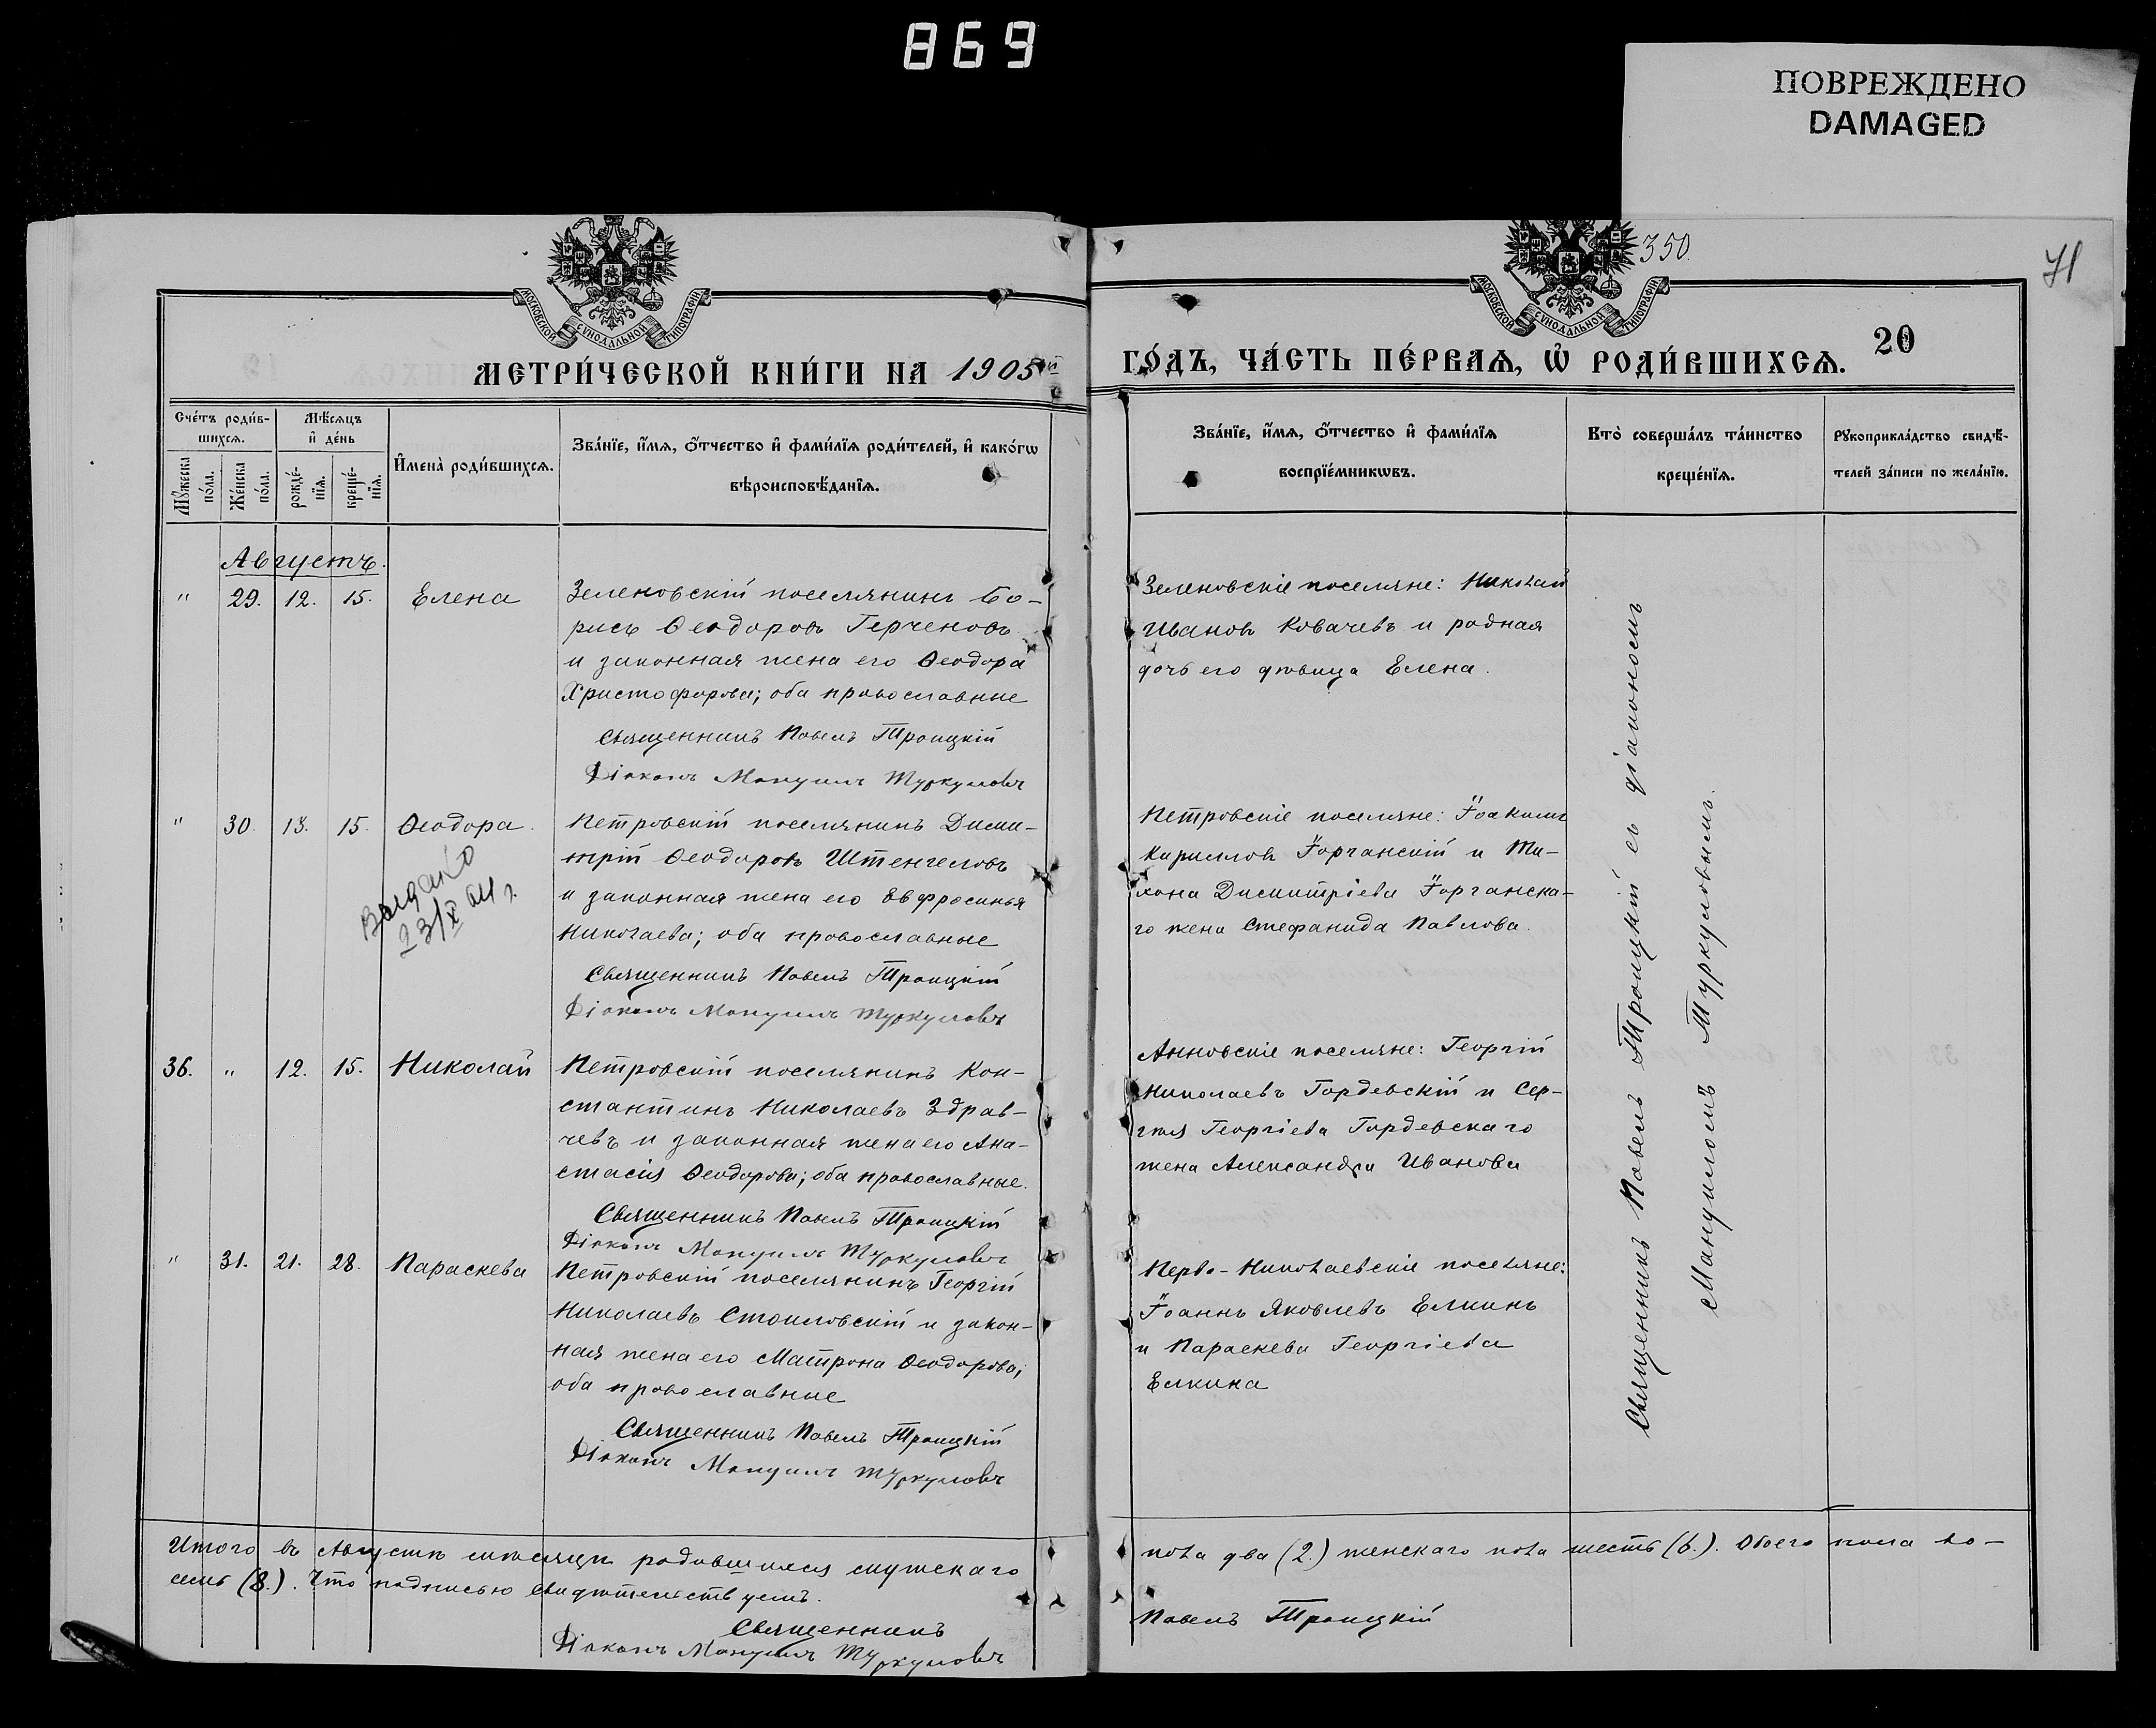 869
ПОВРЕЖДЕНО
DAMAGED
350.
71
МОСКОВСКОЙ СѴНОДАЛЬНОЙ ТИПОГРАФІИ
МОСКОВСКОЙ СѴНОДАЛЬНОЙ ТИПОГРАФІИ
МЕТРИ́ЧЕСКОЙ КНИ́ГИ НА 1905й
ГО́ДЪ, ЧА́СТЬ ПЕ́РВАѦ, Ѡ҆ РОДИ́ВШИХСѦ. 20
Сче́тъ роди́в-
шихсѧ.
Мꙋ́жеска по́ла.
Же́нска по́ла.
Мѣ́сѧцъ
и҆ де́нь
рожде́-
нїѧ.
креще́-
нїѧ.
И҆мена̀ роди́вшихсѧ.
Зва́нїе, и҆́мѧ, ѻ҆́тчество и҆ фами́лїѧ роди́телей, и҆ како́гѡ
вѣроисповѣ́данїѧ.
Зва́нїе, и҆́мѧ, ѻ҆́тчество и҆ фами́лїѧ
воспрїе́мникѡвъ.
Кто̀ соверша́лъ та́инство
креще́нїѧ.
Рꙋкоприкла́дство свидѣ́-
телей за́писи по жела́нїю.
Августъ.
" 29. 12. 15. Елена
Зеленовскій поселянинъ Бо-
рисъ Ѳеодоровъ Герченовъ
и законная жена его Ѳеодора
Христофорова; оба православные
Священникъ Павелъ Троицкій
Діаконъ Мануилъ Туркуловъ
Зеленовскіе поселяне: Николай
Ивановъ Ковачевъ и родная
дочь его дѣвица Елена.
" 30. 13. 15. Ѳеодора.
Выдано
23/X 641 г.
Петровскій поселянинъ Дими-
трій Ѳеодоровъ Штенгеловъ
и законная жена его Евфросинья
Николаева; оба православные
Священникъ Павелъ Троицкій
Діаконъ Мануилъ Туркуловъ
Петровскіе поселяне: Іоакимъ
Кирилловъ Іорганскій и Ти-
хона Димитріева Іорганска-
го жена Стефанида Павлова.
36. " 12. 15. Николай
Петровскій поселянинъ Кон-
стантинъ Николаевъ Здрав-
чевъ и законная жена его Ана-
стасія Ѳеодорова; оба православные.
Священникъ Павелъ Троицкій
Діаконъ Мануилъ Туркуловъ
Анновскіе поселяне: Георгій
Николаевъ Гордевскій и Сер-
гѣя Георгіева Гордевскаго
жена Александра Иванова
" 31. 21. 28. Параскева
Петровскій поселянинъ Георгій
Николаевъ Стоиловскій и закон-
ная жена его Матрона Ѳеодорова;
оба православные
Священникъ Павелъ Троицкій
Діаконъ Мануилъ Туркуловъ
Перво-Николаевскіе поселяне:
Іоаннъ Яковлевъ Елкинъ
и Параскева Георгіева
Елкина
Священникъ Павелъ Троицкій съ діакономъ
Мануиломъ Туркуловымъ.
Итого въ Августѣ мѣсяцѣ родившихся мужскаго пола два (2.) женскаго пола шесть (6.). Обоего пола во-
семь (8.). Что подписью свидѣтельствуемъ.
Священникъ Павелъ Троицкій
Діаконъ Мануилъ Туркуловъ